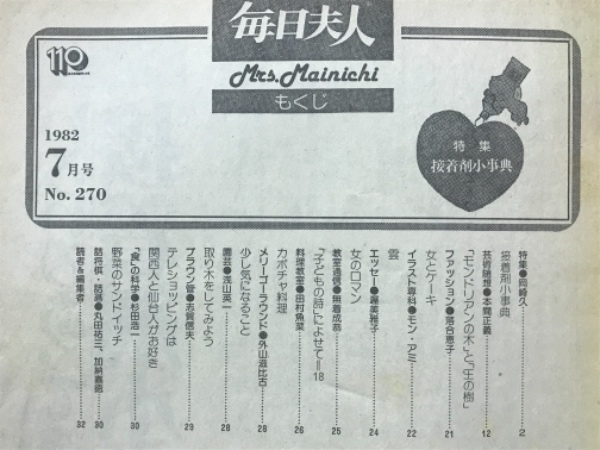 毎日夫人
Mrs. Mainichi
もくじ
110
1982
7月号
No. 270
特集
接着剤小事典
特集●岡崎久……2
接着剤小事典
芸術随想●本間正義……12
「モンドリアンの木」と「生の樹」
ファッション●落合恵子……21
女とケーキ
イラスト専科●モン・アミ……22
雲
エッセー●渥美雅子……24
女のロマン
教室通信●無着成恭……25
「子どもの詩」によせて=18
料理教室●田村魚菜……26
カボチャ料理
メリーゴーラウンド●外山滋比古……28
少し気になること
園芸●浅山英一……28
取り木をしてみよう
ブラウン管●志賀信夫……29
テレショッピングは
関西人と仙台人がお好き
「食」の科学●杉田浩一……30
野菜のサンドイッチ
詰将棋・詰碁●丸田祐三、加納嘉徳……30
読者&編集者……32